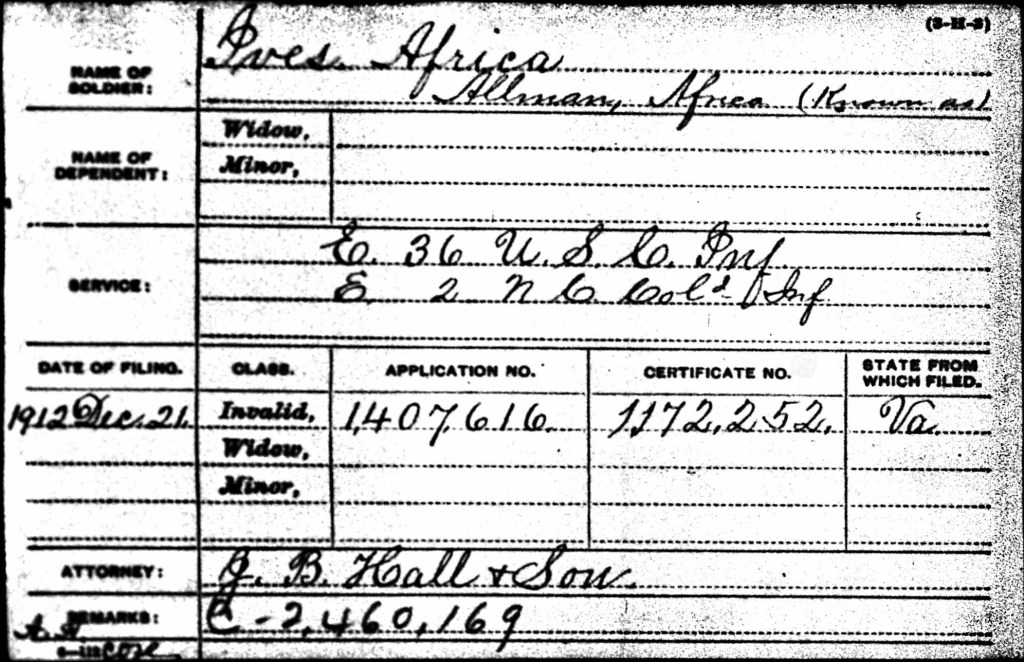 (3-H-3)
NAME OF SOLDIER: Ives, Africa
Allman, Africa (Known as)
NAME OF DEPENDENT: Widow,
Minor,
SERVICE: E. 36 U. S. C. Inf.
E 2 N C Col'd Inf
DATE OF FILING. CLASS. APPLICATION NO. CERTIFICATE NO. STATE FROM WHICH FILED.
1912 Dec. 21. Invalid, 1,407,616. 1,172,252. Va.
Widow,
Minor,
ATTORNEY: J. B. Hall & Son.
REMARKS: C-2,460,169